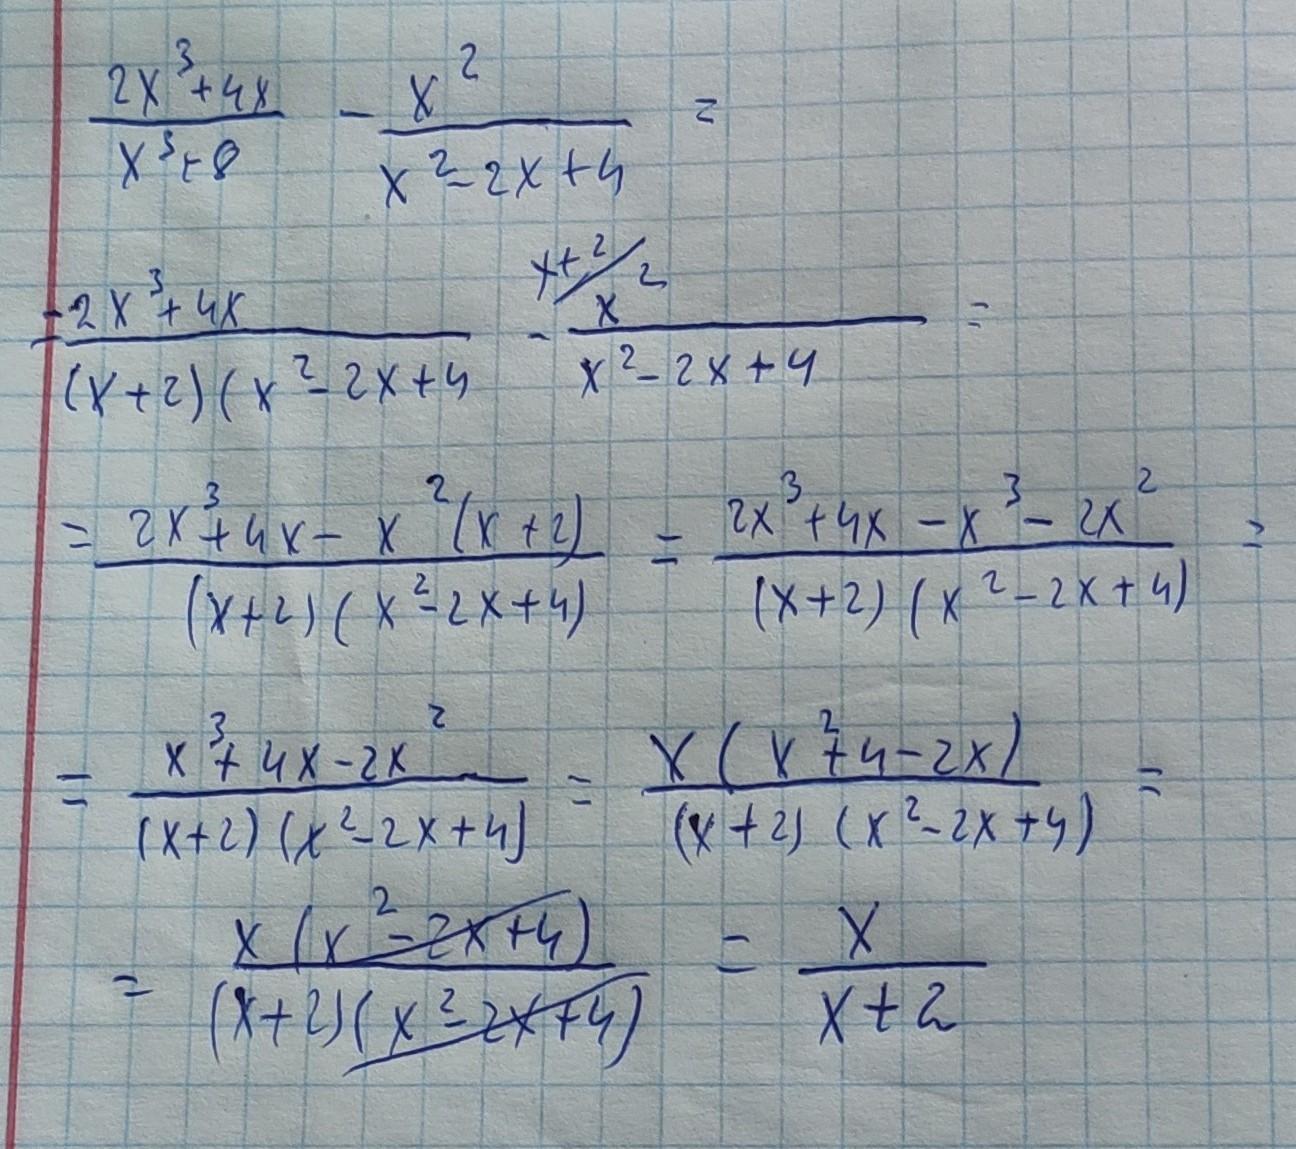 \frac{2x^3+4x}{x^3+8} - \frac{x^2}{x^2-2x+4} =
= \frac{2x^3+4x}{(x+2)(x^2-2x+4} - \frac{x^2}{x^2-2x+4}^{x+2/} =
= \frac{2x^3+4x-x^2(x+2)}{(x+2)(x^2-2x+4)} = \frac{2x^3+4x-x^3-2x^2}{(x+2)(x^2-2x+4)} =
= \frac{x^3+4x-2x^2}{(x+2)(x^2-2x+4)} = \frac{x(x^2+4-2x)}{(x+2)(x^2-2x+4)} =
= \frac{x(x^2-2x+4)}{(x+2)(x^2-2x+4)} = \frac{x}{x+2}